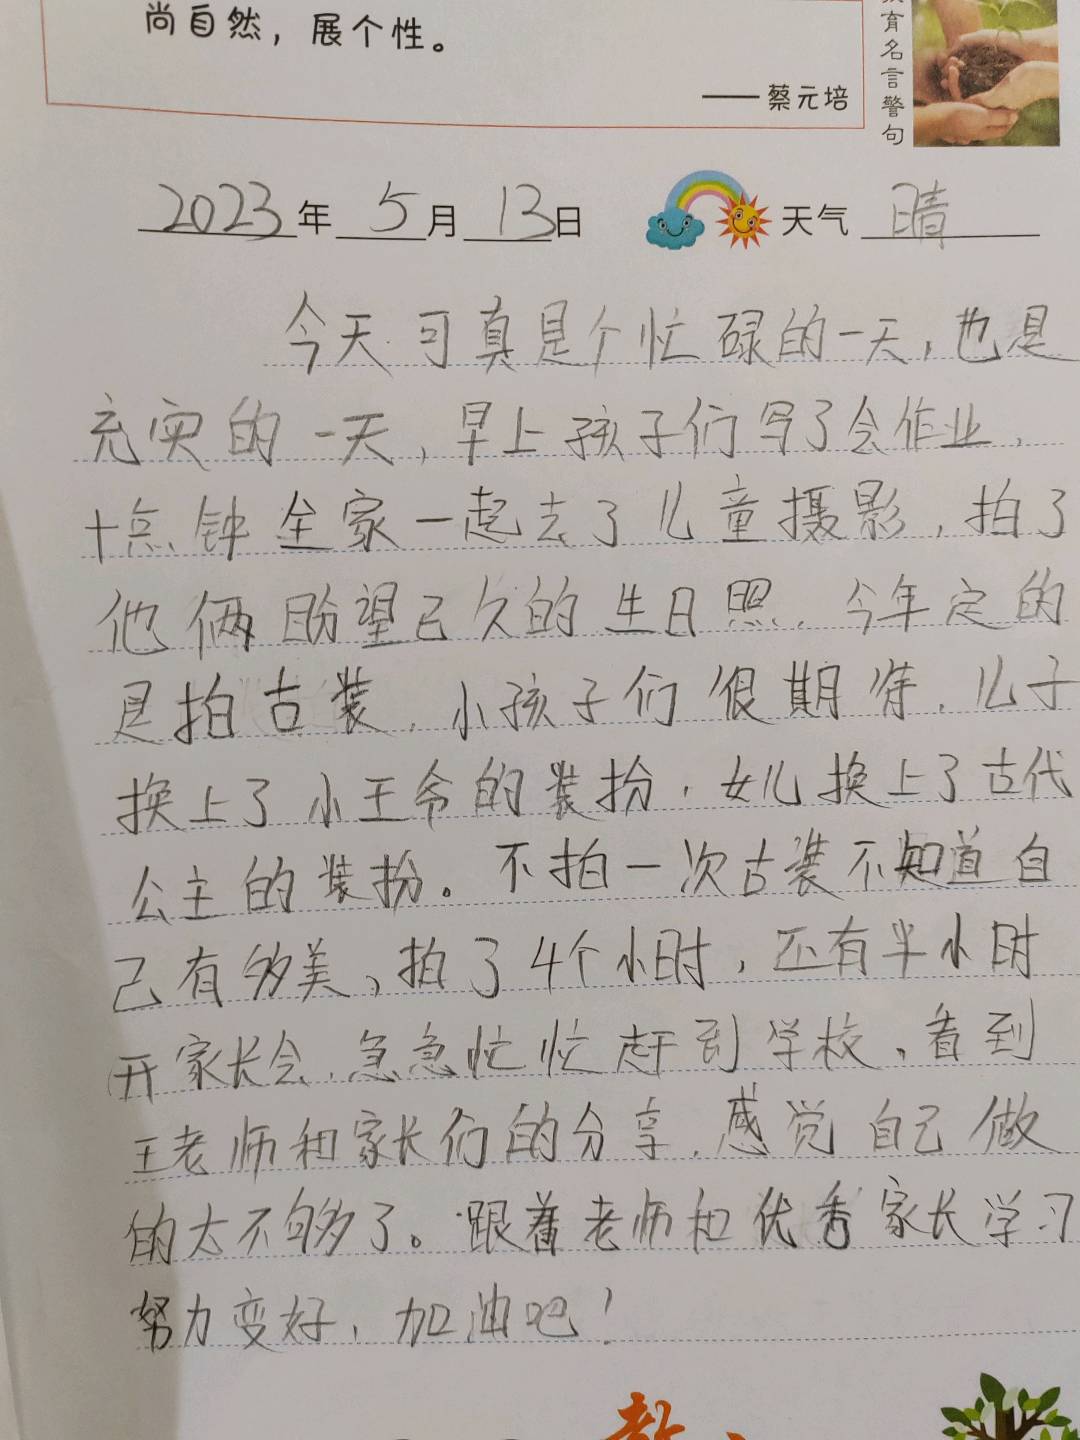 尚自然，展个性。
——蔡元培
育名言警句
2023年 5月 13日 天气 晴
今天可真是个忙碌的一天，也是
充实的一天，早上孩子们写了会作业，
十点钟全家一起去了儿童摄影，拍了
他俩盼望已久的生日照，今年定的
是拍古装，小孩子们很期待，儿子
换上了小王爷的装扮，女儿换上了古代
公主的装扮。不拍一次古装不知道自
己有多美，拍了4个小时，还有半小时
开家长会，急急忙忙赶到学校，看到
王老师和家长们的分享，感觉自己做
的太不够了。跟着老师和优秀家长学习
努力变好，加油吧！